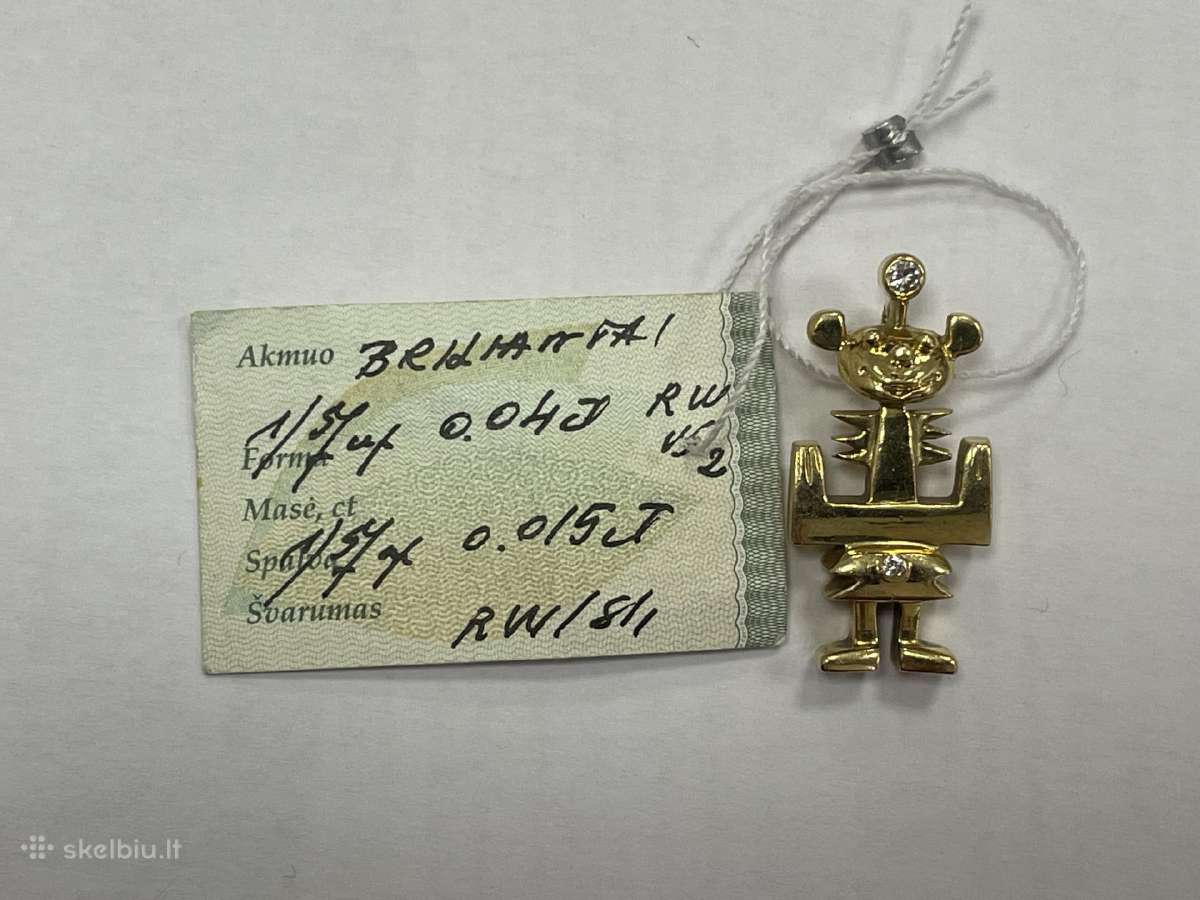 Akmuo BRILIANTAI
1/57 0.04 RW
Forma VS2
Masė, ct
1/57 0.015
Spalva
Švarumas RW/SI1
skelbiu.lt